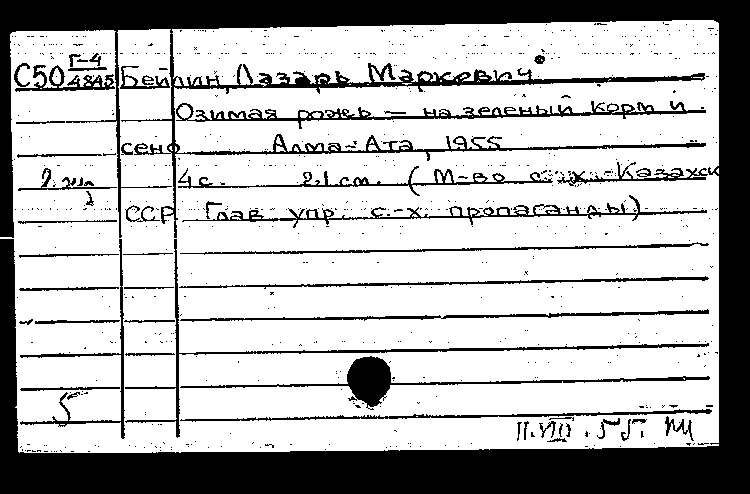 С50 Г-4
4845 Бейлин, Лазарь Маркевич
Озимая рожь — на зеленый корм и
сено Алма-Ата, 1955
4 с. 21 см. (М-во с.-х. Казахск
ССР Глав. упр. с.-х. пропаганды)
5
11.VIII.55.